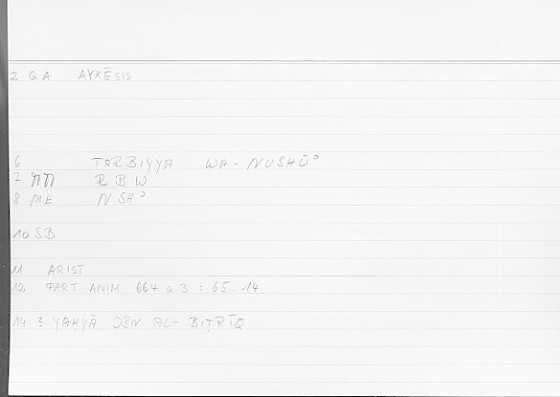 2 QA AYXĒSIS
6 TARBIYYA WA-NUSHŪʾ
7 RBW
8 ME NSHʾ
10 SB
11 ARIST
12 PART ANIM 664 a 3 : 65.14
14 YAḤYĀ IBN AL-BIṬRĪQ